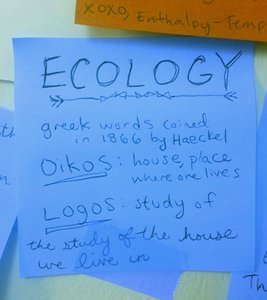 xoxo, Enthalpy-Temp
ECOLOGY
greek words coined
in 1866 by Haeckel
Oikos: house, place
where one lives
Logos: study of
the study of the house
we live in
E
Th